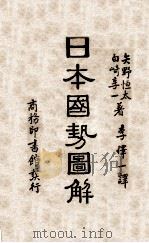 矢野恒太
白崎享一 著
李倬 譯
日本國勢圖解
商務印書館發行
mtoou.info